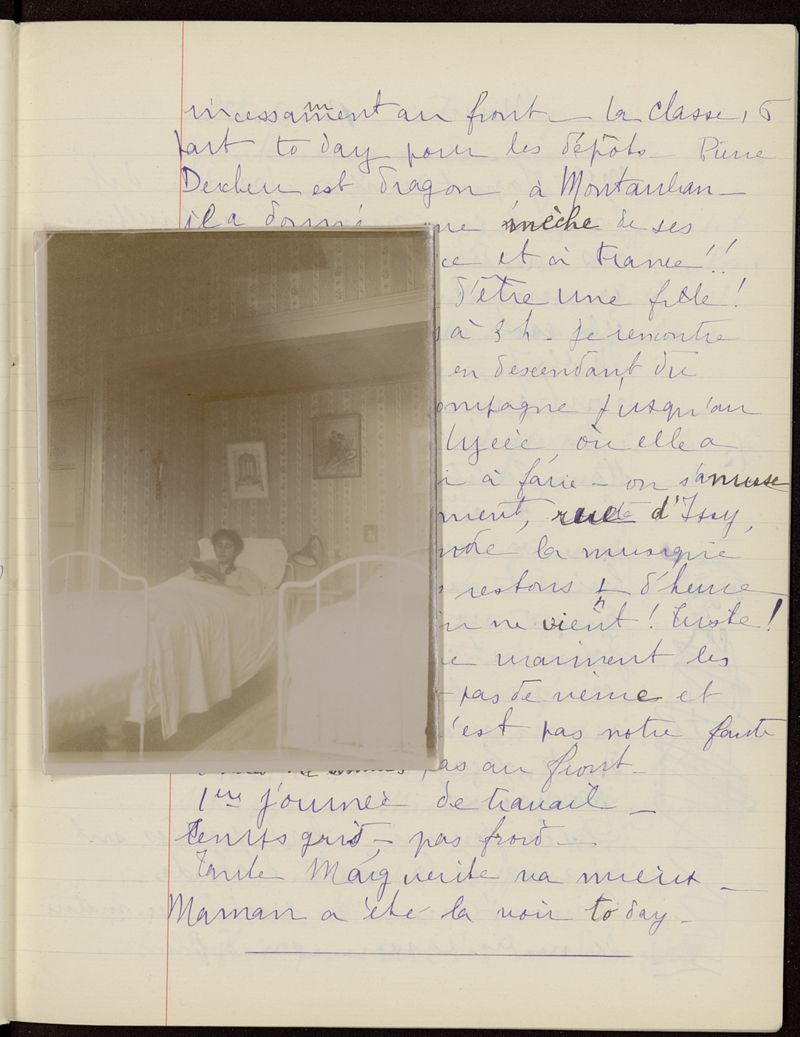 incessamment au front – la classe 16
part to day pour les dépôts – Pierre
est dragon à Montauban –
il a donné une mèche de ses
ce et à France!!
d'être une fille!
à 3 h – je rencontre
en descendant du
ompagne jusqu'au
lycée, où elle a
à faire – on s'amuse
ment, rue d'Issy,
ndre la musique
restons 1/4 d'heure
ne vient! Zuste!
vraiment les
pas de veine et
'est pas notre faute
pas au front –
1ère journée de travail –
temps gris – pas froid –
Tante Marguerite va mieux –
Maman a été la voir to day –